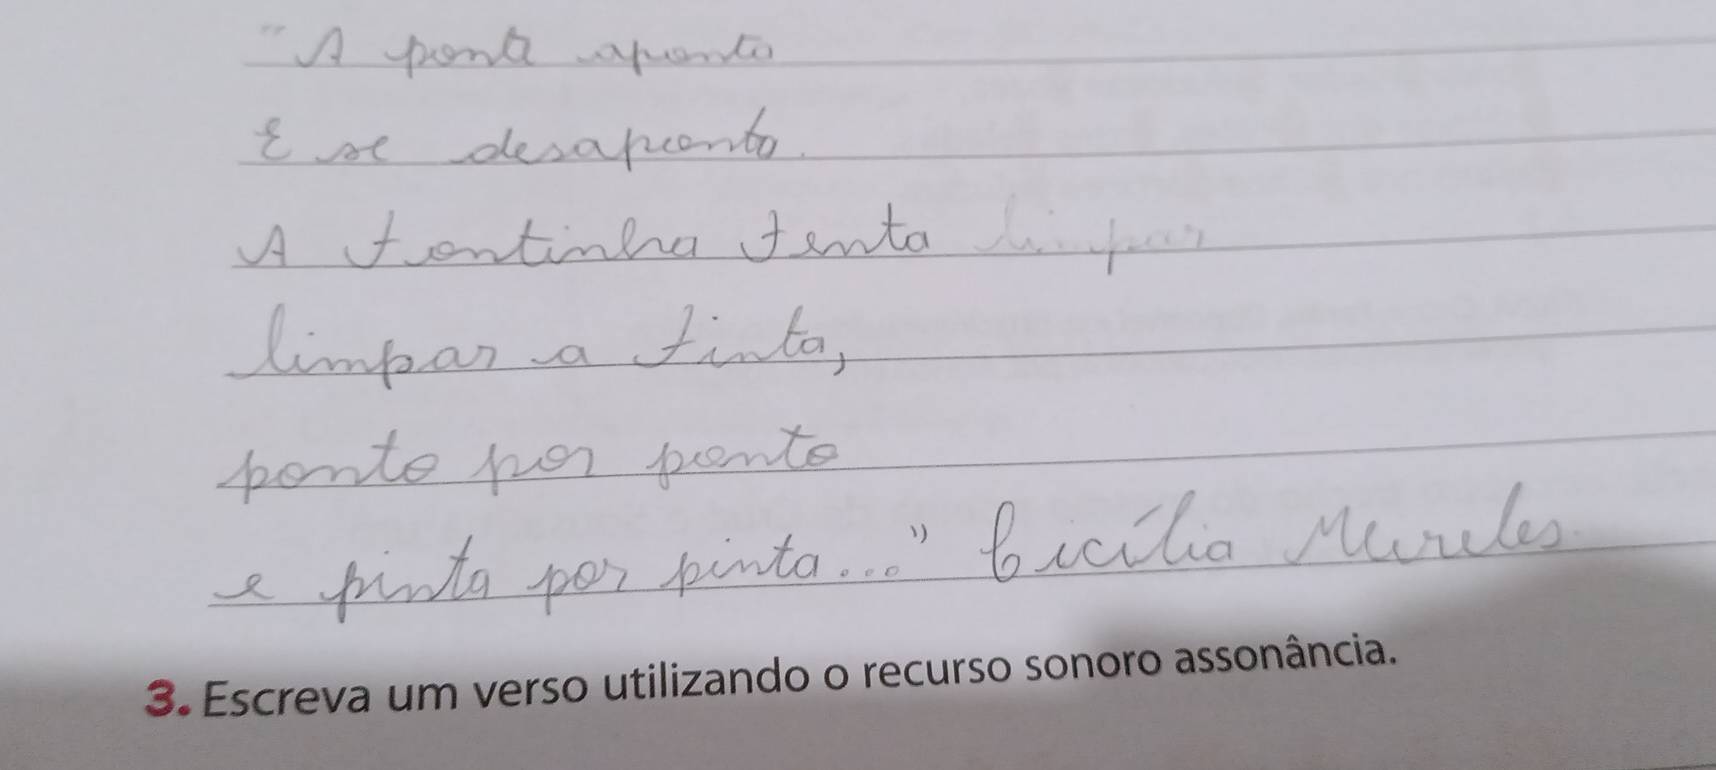 "A ponta aponta
E se desaponta.
A tontinha tenta limpar
limpar a tinta,
ponto por ponto
e pinta por pinta..." Cicília Meireles.
3. Escreva um verso utilizando o recurso sonoro assonância.